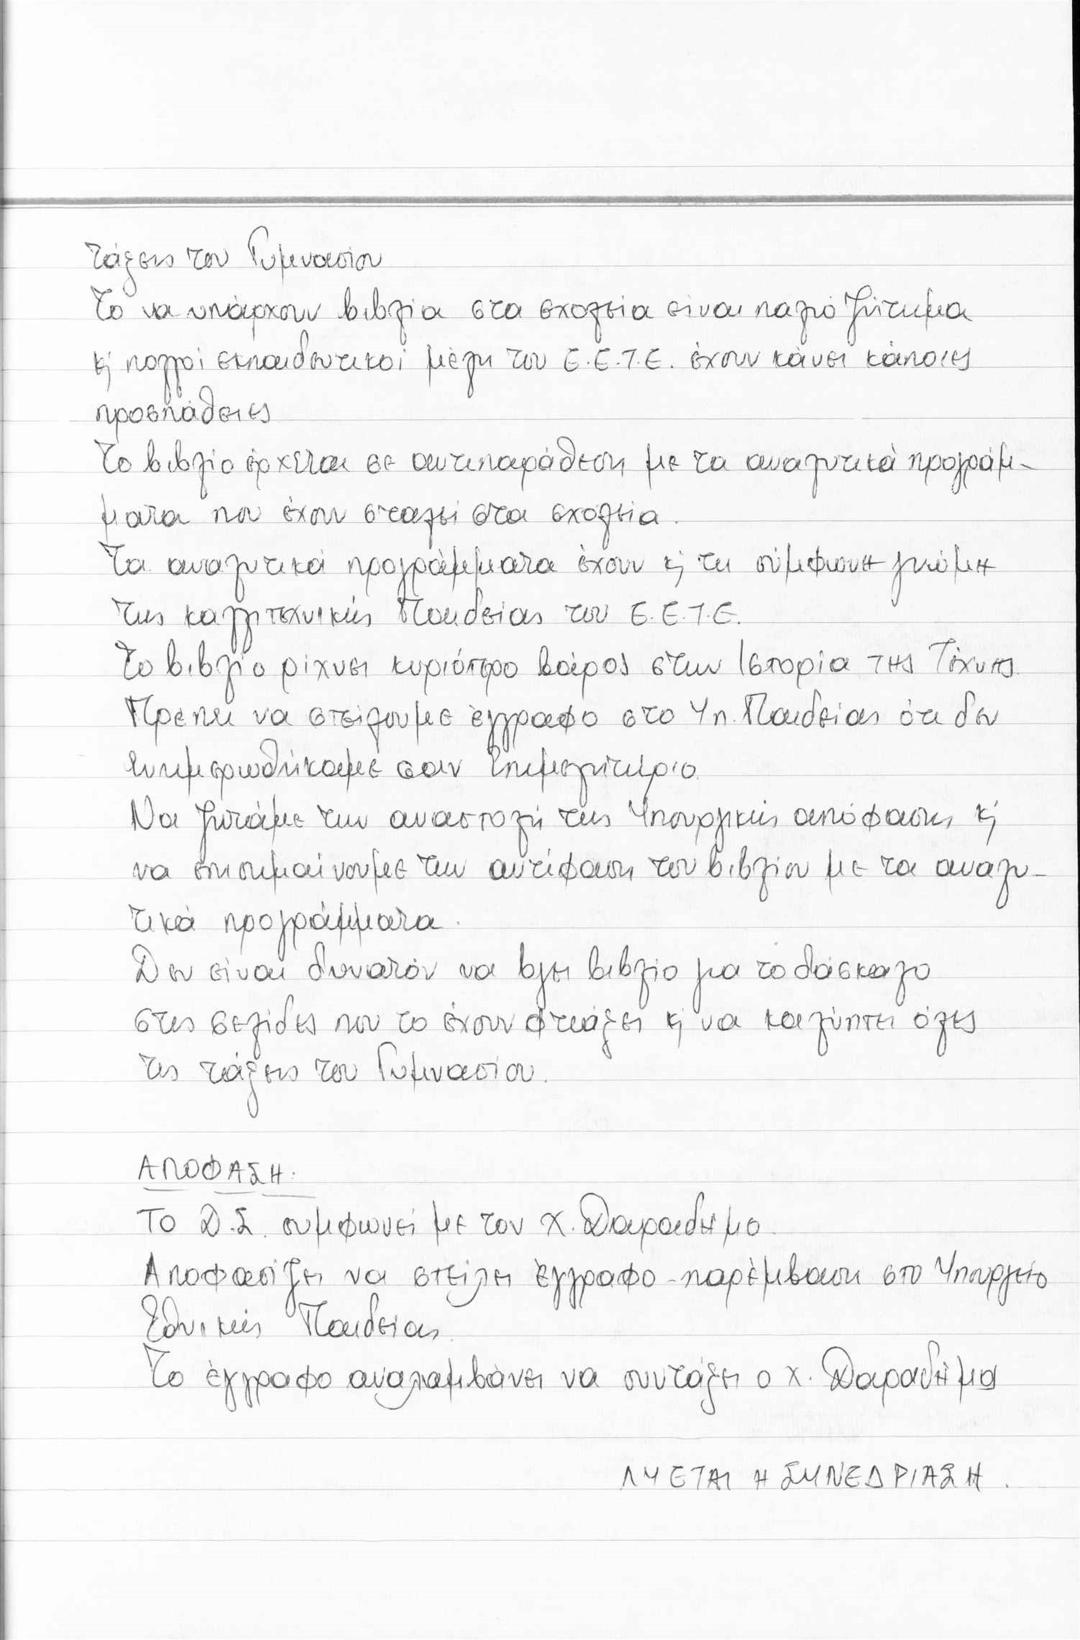 τάξεις του Γυμνασίου
Το να υπάρχουν βιβλία στα σχολεία είναι παλιό ζήτημα
κ' πολλοί εκπαιδευτικοί μέλη του Ε.Ε.Τ.Ε. έχουν κάνει κάποιες
προσπάθειες
Το βιβλίο έρχεται σε αντιπαράθεση με τα αναλυτικά προγράμ-
ματα που έχουν σταλεί στα σχολεία.
Τα αναλυτικά προγράμματα έχουν κ' τη σύμφωνη γνώμη
της καλλιτεχνικής Παιδείας του Ε.Ε.Τ.Ε.
Το βιβλίο ρίχνει κυριότερο βάρος στην Ιστορία της Τέχνης.
Πρέπει να στείλουμε έγγραφο στο Υπ. Παιδείας ότι δεν
ενημερωθήκαμε σαν Επιμελητήριο.
Να ζητάμε την αναστολή της Υπουργικής απόφασης κ'
να επισημαίνουμε την αντίφαση του βιβλίου με τα αναλυ-
τικά προγράμματα.
Δεν είναι δυνατόν να βγει βιβλίο για το δάσκαλο
στις σελίδες που το έχουν φτιάξει κ' να καλύπτει όλες
τις τάξεις του Γυμνασίου.
ΑΠΟΦΑΣΗ:
Το Δ.Σ. συμφωνεί με τον Χ. Δαραδήμο.
Αποφασίζει να στείλει έγγραφο-παρέμβαση στο Υπουργείο
Εθνικής Παιδείας.
Το έγγραφο αναλαμβάνει να συντάξει ο Χ. Δαραδήμο
ΛΥΕΤΑΙ Η ΣΥΝΕΔΡΙΑΣΗ.